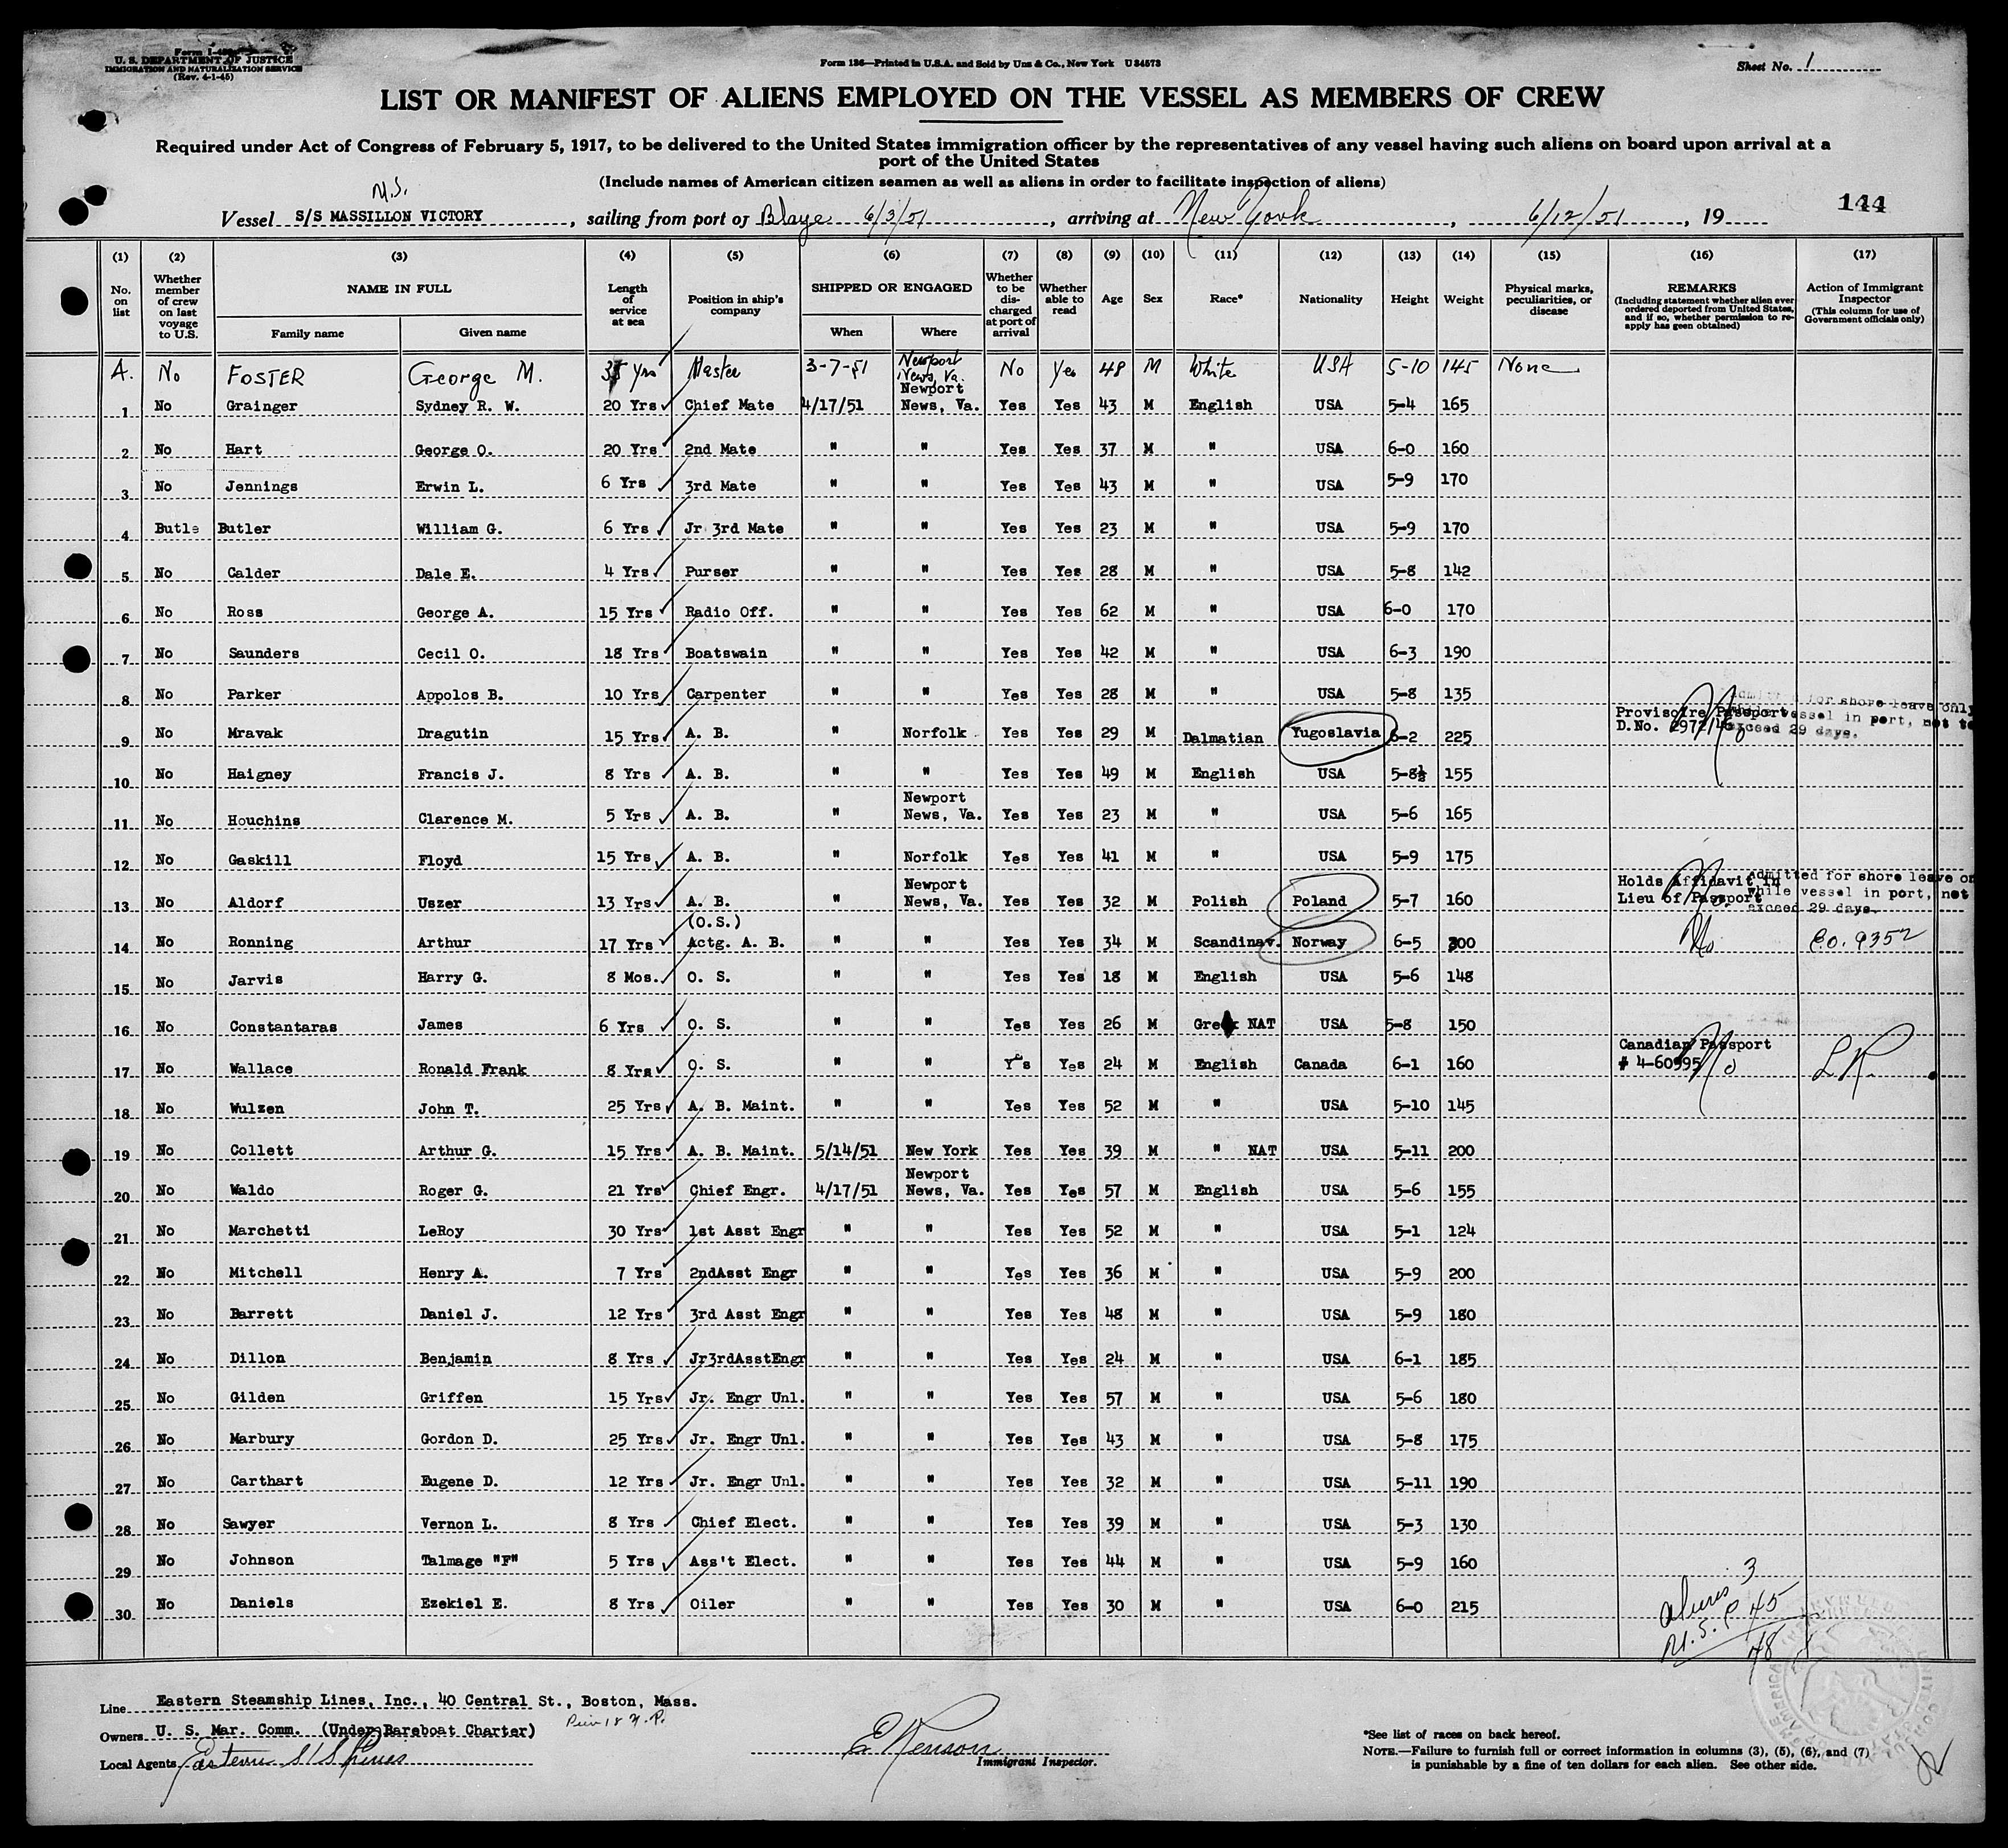 Form I-480
U. S. DEPARTMENT OF JUSTICE
IMMIGRATION AND NATURALIZATION SERVICE
(Rev. 4-1-45)
Form 136—Printed in U.S.A. and Sold by Unz & Co., New York U 34573
Sheet No. 1
LIST OR MANIFEST OF ALIENS EMPLOYED ON THE VESSEL AS MEMBERS OF CREW
Required under Act of Congress of February 5, 1917, to be delivered to the United States immigration officer by the representatives of any vessel having such aliens on board upon arrival at a
port of the United States
(Include names of American citizen seamen as well as aliens in order to facilitate inspection of aliens)
M.S.
Vessel S/S MASSILLON VICTORY, sailing from port of Blaye 6/3/51, arriving at New York, 6/12/51, 19
144
(1) (2) (3) (4) (5) (6) (7) (8) (9) (10) (11) (12) (13) (14) (15) (16) (17)
No. on list
Whether member of crew on last voyage to U.S.
NAME IN FULL
Family name Given name
Length of service at sea
Position in ship's company
SHIPPED OR ENGAGED
When Where
Whether to be discharged at port of arrival
Whether able to read
Age Sex Race* Nationality Height Weight
Physical marks, peculiarities, or disease
REMARKS
(Including statement whether alien ever ordered deported from United States, and if so, whether permission to re-apply has geen obtained)
Action of Immigrant Inspector
(This column for use of Government officials only)
A. No FOSTER George M. 35 Yrs Master 3-7-51 Newport News, Va. No Yes 48 M White USA 5-10 145 None
1 No Grainger Sydney R. W. 20 Yrs Chief Mate 4/17/51 Newport News, Va. Yes Yes 43 M English USA 5-4 165
2 No Hart George O. 20 Yrs 2nd Mate " " Yes Yes 37 M " USA 6-0 160
3 No Jennings Erwin L. 6 Yrs 3rd Mate " " Yes Yes 43 M " USA 5-9 170
4 Butle Butler William G. 6 Yrs Jr 3rd Mate " " Yes Yes 23 M " USA 5-9 170
5 No Calder Dale E. 4 Yrs Purser " " Yes Yes 28 M " USA 5-8 142
6 No Ross George A. 15 Yrs Radio Off. " " Yes Yes 62 M " USA 6-0 170
7 No Saunders Cecil O. 18 Yrs Boatswain " " Yes Yes 42 M " USA 6-3 190
8 No Parker Appolos B. 10 Yrs Carpenter " " Yes Yes 28 M " USA 5-8 135
9 No Mravak Dragutin 15 Yrs A. B. " Norfolk Yes Yes 29 M Dalmatian Yugoslavia 6-2 225 Provisoire Passport D.No. No Admitted for shore leave only while vessel in port, not to exceed 29 days.
10 No Haigney Francis J. 8 Yrs A. B. " " Yes Yes 49 M English USA 5-8½ 155
11 No Houchins Clarence M. 5 Yrs A. B. " Newport News, Va. Yes Yes 23 M " USA 5-6 165
12 No Gaskill Floyd 15 Yrs A. B. " Norfolk Yes Yes 41 M " USA 5-9 175
13 No Aldorf Uszer 13 Yrs A. B. " Newport News, Va. Yes Yes 32 M Polish Poland 5-7 160 Holds Affidavit in Lieu of Passport No Admitted for shore leave on while vessel in port, not exceed 29 days.
14 No Ronning Arthur 17 Yrs (O.S.) Actg. A. B. " " Yes Yes 34 M Scandinav. Norway 6-5 200 No C.O. 9352
15 No Jarvis Harry G. 8 Mos. O. S. " " Yes Yes 18 M English USA 5-6 148
16 No Constantaras James 6 Yrs O. S. " " Yes Yes 26 M Greek NAT USA 5-8 150
17 No Wallace Ronald Frank 8 Yrs O. S. " " Yes Yes 24 M English Canada 6-1 160 Canadian Passport # 4-60995 No L.R.
18 No Wulzen John T. 25 Yrs A. B. Maint. " " Yes Yes 52 M " USA 5-10 145
19 No Collett Arthur G. 15 Yrs A. B. Maint. 5/14/51 New York Yes Yes 39 M " NAT USA 5-11 200
20 No Waldo Roger G. 21 Yrs Chief Engr. 4/17/51 Newport News, Va. Yes Yes 57 M English USA 5-6 155
21 No Marchetti LeRoy 30 Yrs 1st Asst Engr " " Yes Yes 52 M " USA 5-1 124
22 No Mitchell Henry A. 7 Yrs 2ndAsst Engr " " Yes Yes 36 M " USA 5-9 200
23 No Barrett Daniel J. 12 Yrs 3rd Asst Engr " " Yes Yes 48 M " USA 5-9 180
24 No Dillon Benjamin 8 Yrs Jr3rdAsstEngr " " Yes Yes 24 M " USA 6-1 185
25 No Gilden Griffen 15 Yrs Jr. Engr Unl. " " Yes Yes 57 M " USA 5-6 180
26 No Marbury Gordon D. 25 Yrs Jr. Engr Unl. " " Yes Yes 43 M " USA 5-8 175
27 No Carthart Eugene D. 12 Yrs Jr. Engr Unl. " " Yes Yes 32 M " USA 5-11 190
28 No Sawyer Vernon L. 8 Yrs Chief Elect. " " Yes Yes 39 M " USA 5-3 130
29 No Johnson Talmage "F" 5 Yrs Ass't Elect. " " Yes Yes 44 M " USA 5-9 160
30 No Daniels Ezekiel E. 8 Yrs Oiler " " Yes Yes 30 M " USA 6-0 215
Aliens 3
U.S.C 45
48
Line Eastern Steamship Lines, Inc., 40 Central St., Boston, Mass.
Pier 18 N.R.
Owners U. S. Mar. Comm. (Under Bareboat Charter)
Local Agents Eastern S/S Lines
Immigrant Inspector.
*See list of races on back hereof.
NOTE.—Failure to furnish full or correct information in columns (3), (5), (6), and (7)
is punishable by a fine of ten dollars for each alien. See other side.